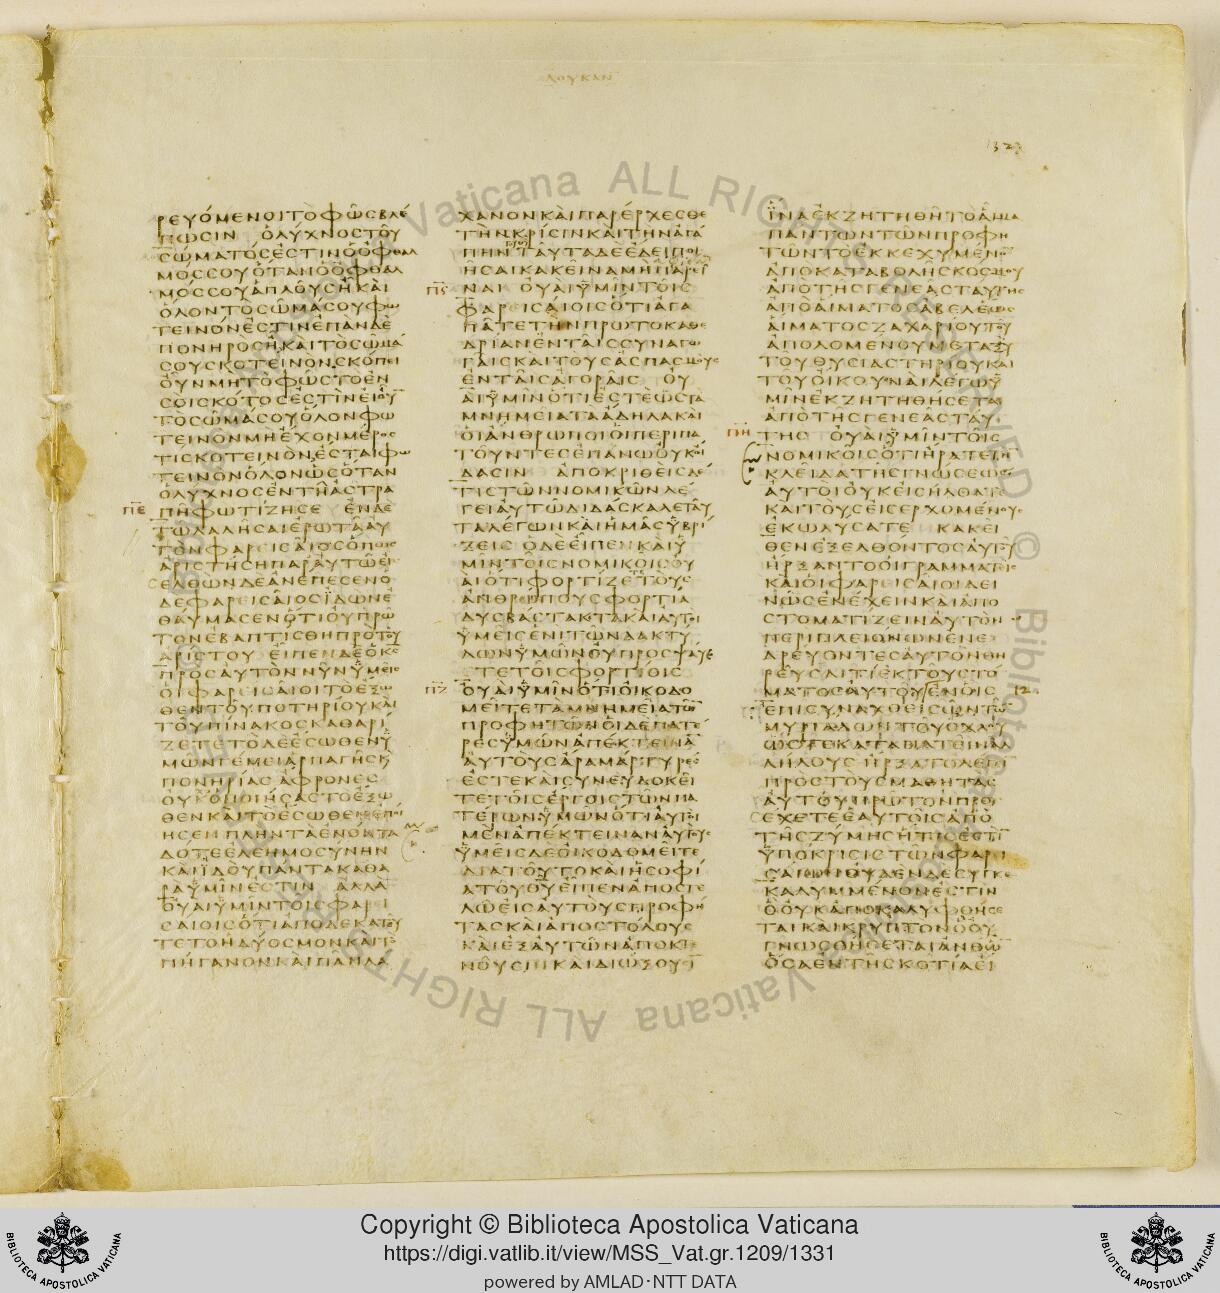 ΛΟΥΚΑΝ
1323
ΡΕΥΟΜΕΝΟΙ ΤΟ ΦΩΣ ΒΛΕ
ΠΩΣΙΝ Ο ΛΥΧΝΟΣ ΤΟΥ
ΣΩΜΑΤΟΣ ΕΣΤΙΝ Ο ΟΦΘΑΛ
ΜΟΣ ΣΟΥ ΟΤΑΝ Ο ΟΦΘΑΛ
ΜΟΣ ΣΟΥ ΑΠΛΟΥΣ Η ΚΑΙ
ΟΛΟΝ ΤΟ ΣΩΜΑ ΣΟΥ ΦΩ
ΤΕΙΝΟΝ ΕΣΤΙΝ ΕΠΑΝ ΔΕ
ΠΟΝΗΡΟΣ Η ΚΑΙ ΤΟ ΣΩΜΑ
ΣΟΥ ΣΚΟΤΕΙΝΟΝ ΣΚΟΠΕΙ
ΟΥΝ ΜΗ ΤΟ ΦΩΣ ΤΟ ΕΝ
ΣΟΙ ΣΚΟΤΟΣ ΕΣΤΙΝ ΕΙ ΟΥ
ΤΟ ΣΩΜΑ ΣΟΥ ΟΛΟΝ ΦΩ
ΤΕΙΝΟΝ ΜΗ ΕΧΟΝ ΜΕΡΟΣ
ΤΙ ΣΚΟΤΕΙΝΟΝ ΕΣΤΑΙ ΦΩ
ΤΕΙΝΟΝ ΟΛΟΝ ΩΣ ΟΤΑΝ
Ο ΛΥΧΝΟΣ ΕΝ ΤΗ ΑΣΤΡΑ
ΠΕ ΠΗ ΦΩΤΙΖΗ ΣΕ ΕΝ ΔΕ
ΤΩ ΛΑΛΗΣΑΙ ΕΡΩΤΑ ΑΥ
ΤΟΝ ΦΑΡΕΙΣΑΙΟΣ ΟΠΩΣ
ΑΡΙΣΤΗΣΗ ΠΑΡ ΑΥΤΩ ΕΙΣ
ΕΛΘΩΝ ΔΕ ΑΝΕΠΕΣΕΝ Ο
ΔΕ ΦΑΡΕΙΣΑΙΟΣ ΙΔΩΝ Ε
ΘΑΥΜΑΣΕΝ ΟΤΙ ΟΥ ΠΡΩ
ΤΟΝ ΕΒΑΠΤΙΣΘΗ ΠΡΟ ΤΟΥ
ΑΡΙΣΤΟΥ ΕΙΠΕΝ ΔΕ Ο ΚΣ
ΠΡΟΣ ΑΥΤΟΝ ΝΥΝ ΥΜΕΙΣ
ΟΙ ΦΑΡΕΙΣΑΙΟΙ ΤΟ ΕΞΩ
ΘΕΝ ΤΟΥ ΠΟΤΗΡΙΟΥ ΚΑΙ
ΤΟΥ ΠΙΝΑΚΟΣ ΚΑΘΑΡΙ
ΖΕΤΕ ΤΟ ΔΕ ΕΣΩΘΕΝ Υ
ΜΩΝ ΓΕΜΕΙ ΑΡΠΑΓΗΣ Κ
ΠΟΝΗΡΙΑΣ ΑΦΡΟΝΕΣ
ΟΥΧ Ο ΠΟΙΗΣΑΣ ΤΟ ΕΞΩ
ΘΕΝ ΚΑΙ ΤΟ ΕΣΩΘΕΝ ΕΠΟΙ
ΗΣΕΝ ΠΛΗΝ ΤΑ ΕΝΟΝΤΑ
ΔΟΤΕ ΕΛΕΗΜΟΣΥΝΗΝ
ΚΑΙ ΙΔΟΥ ΠΑΝΤΑ ΚΑΘΑ
ΡΑ ΥΜΙΝ ΕΣΤΙΝ ΑΛΛΑ
ΟΥΑΙ ΥΜΙΝ ΤΟΙΣ ΦΑΡΙ
ΣΑΙΟΙΣ ΟΤΙ ΑΠΟΔΕΚΑΤΟΥ
ΤΕ ΤΟ ΗΔΥΟΣΜΟΝ ΚΑΙ ΤΟ
ΠΗΓΑΝΟΝ ΚΑΙ ΠΑΝ ΛΑ
ΧΑΝΟΝ ΚΑΙ ΠΑΡΕΡΧΕΣΘΕ
ΤΗΝ ΚΡΙΣΙΝ ΚΑΙ ΤΗΝ ΑΓΑ
ΠΗΝ ΤΟΥ ΘΥ ΤΑΥΤΑ ΔΕ ΕΔΕΙ ΠΟΙ
ΗΣΑΙ ΚΑΚΕΙΝΑ ΜΗ ΠΑΡΕΙ
ΠϚ ΝΑΙ ΟΥΑΙ ΥΜΙΝ ΤΟΙΣ
ΦΑΡΕΙΣΑΙΟΙΣ ΟΤΙ ΑΓΑ
ΠΑΤΕ ΤΗΝ ΠΡΩΤΟΚΑΘΕ
ΔΡΙΑΝ ΕΝ ΤΑΙΣ ΣΥΝΑΓΩ
ΓΑΙΣ ΚΑΙ ΤΟΥΣ ΑΣΠΑΣΜΟΥΣ
ΕΝ ΤΑΙΣ ΑΓΟΡΑΙΣ ΟΥ
ΑΙ ΥΜΙΝ ΟΤΙ ΕΣΤΕ ΩΣ ΤΑ
ΜΝΗΜΕΙΑ ΤΑ ΑΔΗΛΑ ΚΑΙ
ΟΙ ΑΝΘΡΩΠΟΙ ΟΙ ΠΕΡΙΠΑ
ΤΟΥΝΤΕΣ ΕΠΑΝΩ ΟΥΚ ΟΙ
ΔΑΣΙΝ ΑΠΟΚΡΙΘΕΙΣ ΔΕ
ΤΙΣ ΤΩΝ ΝΟΜΙΚΩΝ ΛΕ
ΓΕΙ ΑΥΤΩ ΔΙΔΑΣΚΑΛΕ ΤΑΥ
ΤΑ ΛΕΓΩΝ ΚΑΙ ΗΜΑΣ ΥΒΡΙ
ΖΕΙΣ Ο ΔΕ ΕΙΠΕΝ ΚΑΙ Υ
ΜΙΝ ΤΟΙΣ ΝΟΜΙΚΟΙΣ ΟΥ
ΑΙ ΟΤΙ ΦΟΡΤΙΖΕΤΕ ΤΟΥΣ
ΑΝΘΡΩΠΟΥΣ ΦΟΡΤΙΑ
ΔΥΣΒΑΣΤΑΚΤΑ ΚΑΙ ΑΥΤΟΙ
ΥΜΕΙΣ ΕΝΙ ΤΩΝ ΔΑΚΤΥ
ΛΩΝ ΥΜΩΝ ΟΥ ΠΡΟΣΨΑΥΕ
ΤΕ ΤΟΙΣ ΦΟΡΤΙΟΙΣ
ΠΖ ΟΥΑΙ ΥΜΙΝ ΟΤΙ ΟΙΚΟΔΟ
ΜΕΙΤΕ ΤΑ ΜΝΗΜΕΙΑ ΤΩΝ
ΠΡΟΦΗΤΩΝ ΟΙ ΔΕ ΠΑΤΕ
ΡΕΣ ΥΜΩΝ ΑΠΕΚΤΕΙΝΑΝ
ΑΥΤΟΥΣ ΑΡΑ ΜΑΡΤΥΡΕΣ
ΕΣΤΕ ΚΑΙ ΣΥΝΕΥΔΟΚΕΙ
ΤΕ ΤΟΙΣ ΕΡΓΟΙΣ ΤΩΝ ΠΑ
ΤΕΡΩΝ ΥΜΩΝ ΟΤΙ ΑΥΤΟΙ
ΜΕΝ ΑΠΕΚΤΕΙΝΑΝ ΑΥΤΟΥΣ
ΥΜΕΙΣ ΔΕ ΟΙΚΟΔΟΜΕΙΤΕ
ΔΙΑ ΤΟΥΤΟ ΚΑΙ Η ΣΟΦΙ
Α ΤΟΥ ΘΥ ΕΙΠΕΝ ΑΠΟΣΤΕ
ΛΩ ΕΙΣ ΑΥΤΟΥΣ ΠΡΟΦΗ
ΤΑΣ ΚΑΙ ΑΠΟΣΤΟΛΟΥΣ
ΚΑΙ ΕΞ ΑΥΤΩΝ ΑΠΟΚΤΕ
ΝΟΥΣΙΝ ΚΑΙ ΔΙΩΞΟΥΣΙ
ΙΝΑ ΕΚΖΗΤΗΘΗ ΤΟ ΑΙΜΑ
ΠΑΝΤΩΝ ΤΩΝ ΠΡΟΦΗ
ΤΩΝ ΤΟ ΕΚΚΕΧΥΜΕΝΟΝ
ΑΠΟ ΚΑΤΑΒΟΛΗΣ ΚΟΣΜΟΥ
ΑΠΟ ΤΗΣ ΓΕΝΕΑΣ ΤΑΥΤΗΣ
ΑΠΟ ΑΙΜΑΤΟΣ ΑΒΕΛ ΕΩΣ
ΑΙΜΑΤΟΣ ΖΑΧΑΡΙΟΥ ΤΟΥ
ΑΠΟΛΟΜΕΝΟΥ ΜΕΤΑΞΥ
ΤΟΥ ΘΥΣΙΑΣΤΗΡΙΟΥ ΚΑΙ
ΤΟΥ ΟΙΚΟΥ ΝΑΙ ΛΕΓΩ Υ
ΜΙΝ ΕΚΖΗΤΗΘΗΣΕΤΑΙ
ΑΠΟ ΤΗΣ ΓΕΝΕΑΣ ΤΑΥ
ΠΗ ΤΗΣ ΟΥΑΙ ΥΜΙΝ ΤΟΙΣ
ΝΟΜΙΚΟΙΣ ΟΤΙ ΗΡΑΤΕ ΤΗΝ
ΚΛΕΙΔΑ ΤΗΣ ΓΝΩΣΕΩΣ
ΑΥΤΟΙ ΟΥΚ ΕΙΣΗΛΘΑΤΕ
ΚΑΙ ΤΟΥΣ ΕΙΣΕΡΧΟΜΕΝΟΥΣ
ΕΚΩΛΥΣΑΤΕ ΚΑΚΕΙ
ΘΕΝ ΕΞΕΛΘΟΝΤΟΣ ΑΥΤΟΥ
ΗΡΞΑΝΤΟ ΟΙ ΓΡΑΜΜΑΤΕΙΣ
ΚΑΙ ΟΙ ΦΑΡΕΙΣΑΙΟΙ ΔΕΙ
ΝΩΣ ΕΝΕΧΕΙΝ ΚΑΙ ΑΠΟ
ΣΤΟΜΑΤΙΖΕΙΝ ΑΥΤΟΝ
ΠΕΡΙ ΠΛΕΙΟΝΩΝ ΕΝΕ
ΔΡΕΥΟΝΤΕΣ ΑΥΤΟΝ ΘΗ
ΡΕΥΣΑΙ ΤΙ ΕΚ ΤΟΥ ΣΤΟ
ΜΑΤΟΣ ΑΥΤΟΥ ΕΝ ΟΙΣ 12
ΕΠΙΣΥΝΑΧΘΕΙΣΩΝ ΤΩΝ
ΜΥΡΙΑΔΩΝ ΤΟΥ ΟΧΛΟΥ
ΩΣΤΕ ΚΑΤΑΠΑΤΕΙΝ ΑΛ
ΛΗΛΟΥΣ ΗΡΞΑΤΟ ΛΕΓΕΙΝ
ΠΡΟΣ ΤΟΥΣ ΜΑΘΗΤΑΣ
ΑΥΤΟΥ ΠΡΩΤΟΝ ΠΡΟ
ΣΕΧΕΤΕ ΕΑΥΤΟΙΣ ΑΠΟ
ΤΗΣ ΖΥΜΗΣ ΗΤΙΣ ΕΣΤΙΝ
ΥΠΟΚΡΙΣΙΣ ΤΩΝ ΦΑΡΙ
ΣΑΙΩΝ ΟΥΔΕΝ ΔΕ ΣΥΓΚΕ
ΚΑΛΥΜΜΕΝΟΝ ΕΣΤΙΝ
Ο ΟΥΚ ΑΠΟΚΑΛΥΦΘΗΣΕ
ΤΑΙ ΚΑΙ ΚΡΥΠΤΟΝ Ο ΟΥ
ΓΝΩΣΘΗΣΕΤΑΙ ΑΝΘ Ω
ΟΣΑ ΕΝ ΤΗ ΣΚΟΤΙΑ ΕΙ
Copyright © Biblioteca Apostolica Vaticana
https://digi.vatlib.it/view/MSS_Vat.gr.1209/1331
powered by AMLAD·NTT DATA